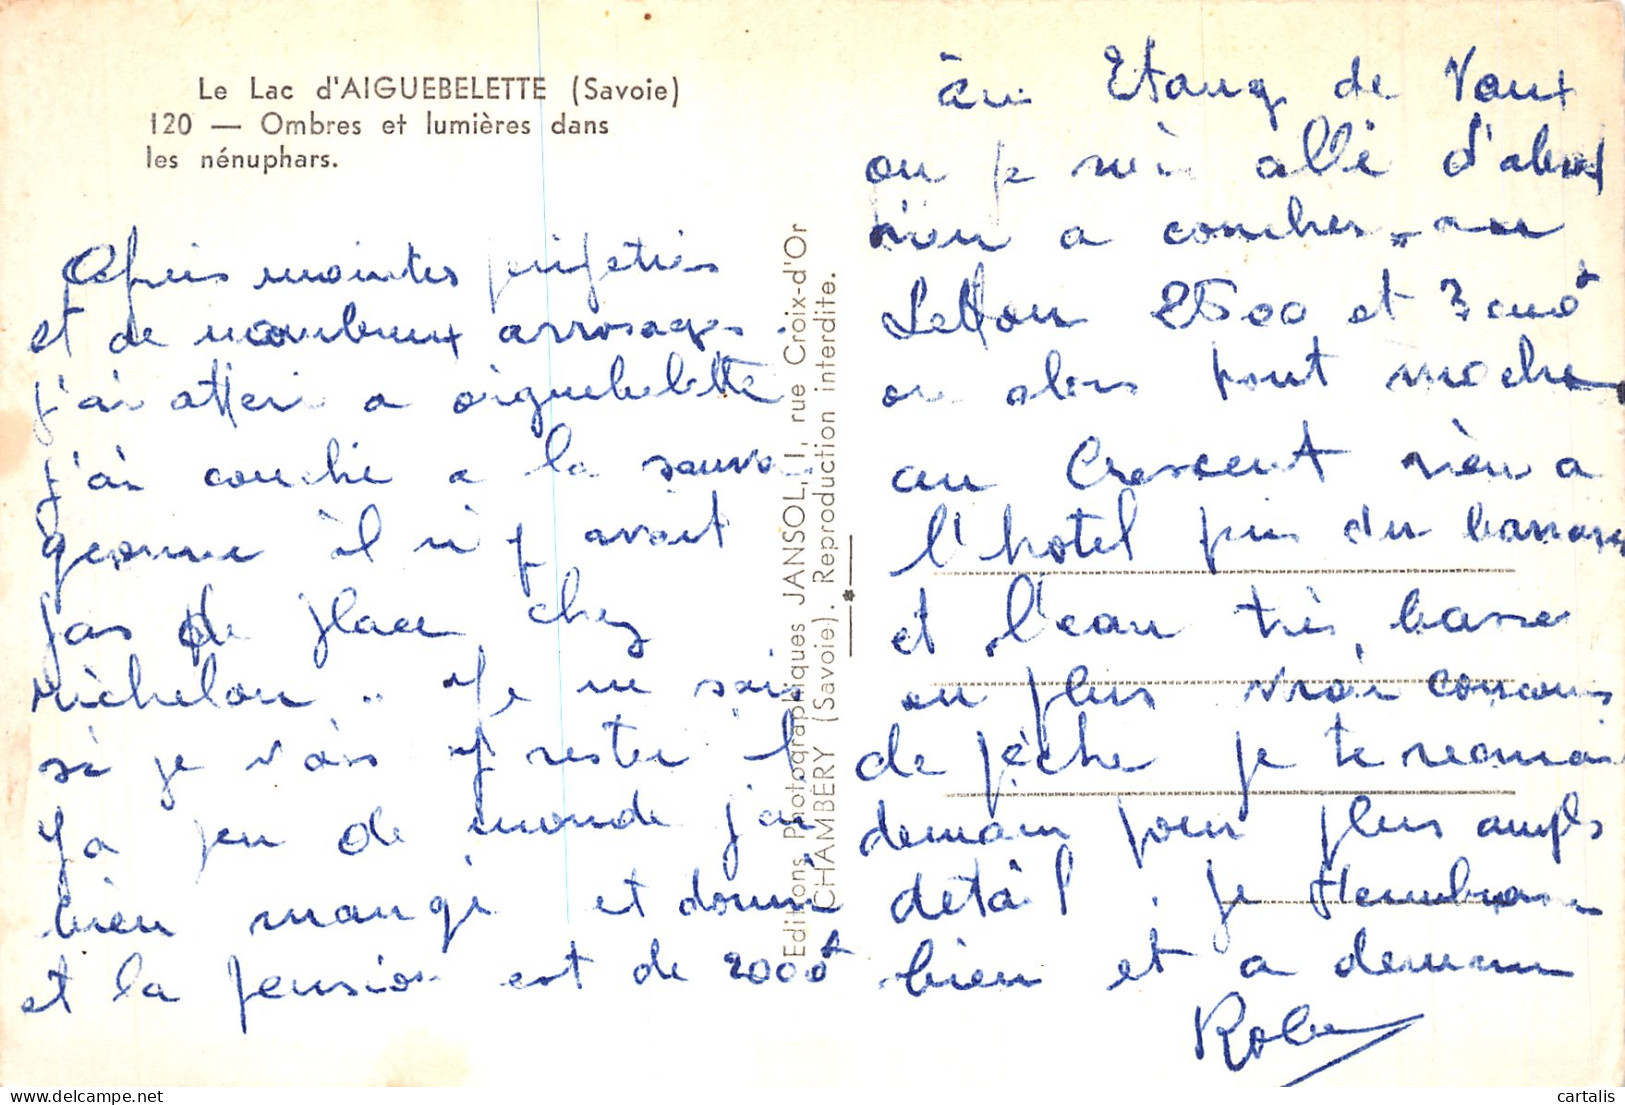 Le Lac d'AIGUEBELETTE (Savoie)
120 — Ombres et lumières dans
les nénuphars.
Apres maintes
et de nombreux arrosages.
j'ai atteri a aiguebelette
j'ai couché a la sauva
geonne il n'y avait
pas de place chez
Michelon .. Je ne sais
si je vais y rester il
Ya peu de monde j'ai
bien mangé et dormi
et la pension est de 2000
Editions Photographiques JANSOL, 1, rue Croix-d'Or
CHAMBÉRY (Savoie). Reproduction interdite.
au Etang de Vaux
ou je suis allé d'abord
rien a coucher
2500 et
ou alors tout moche
au Crescent rien a
l'hotel pres du barrage
et l'eau très basse
en plus vrai concours
de pêche je te
demain pour plus ampls
détail . je t'embrasse
bien et a demain
cartalis